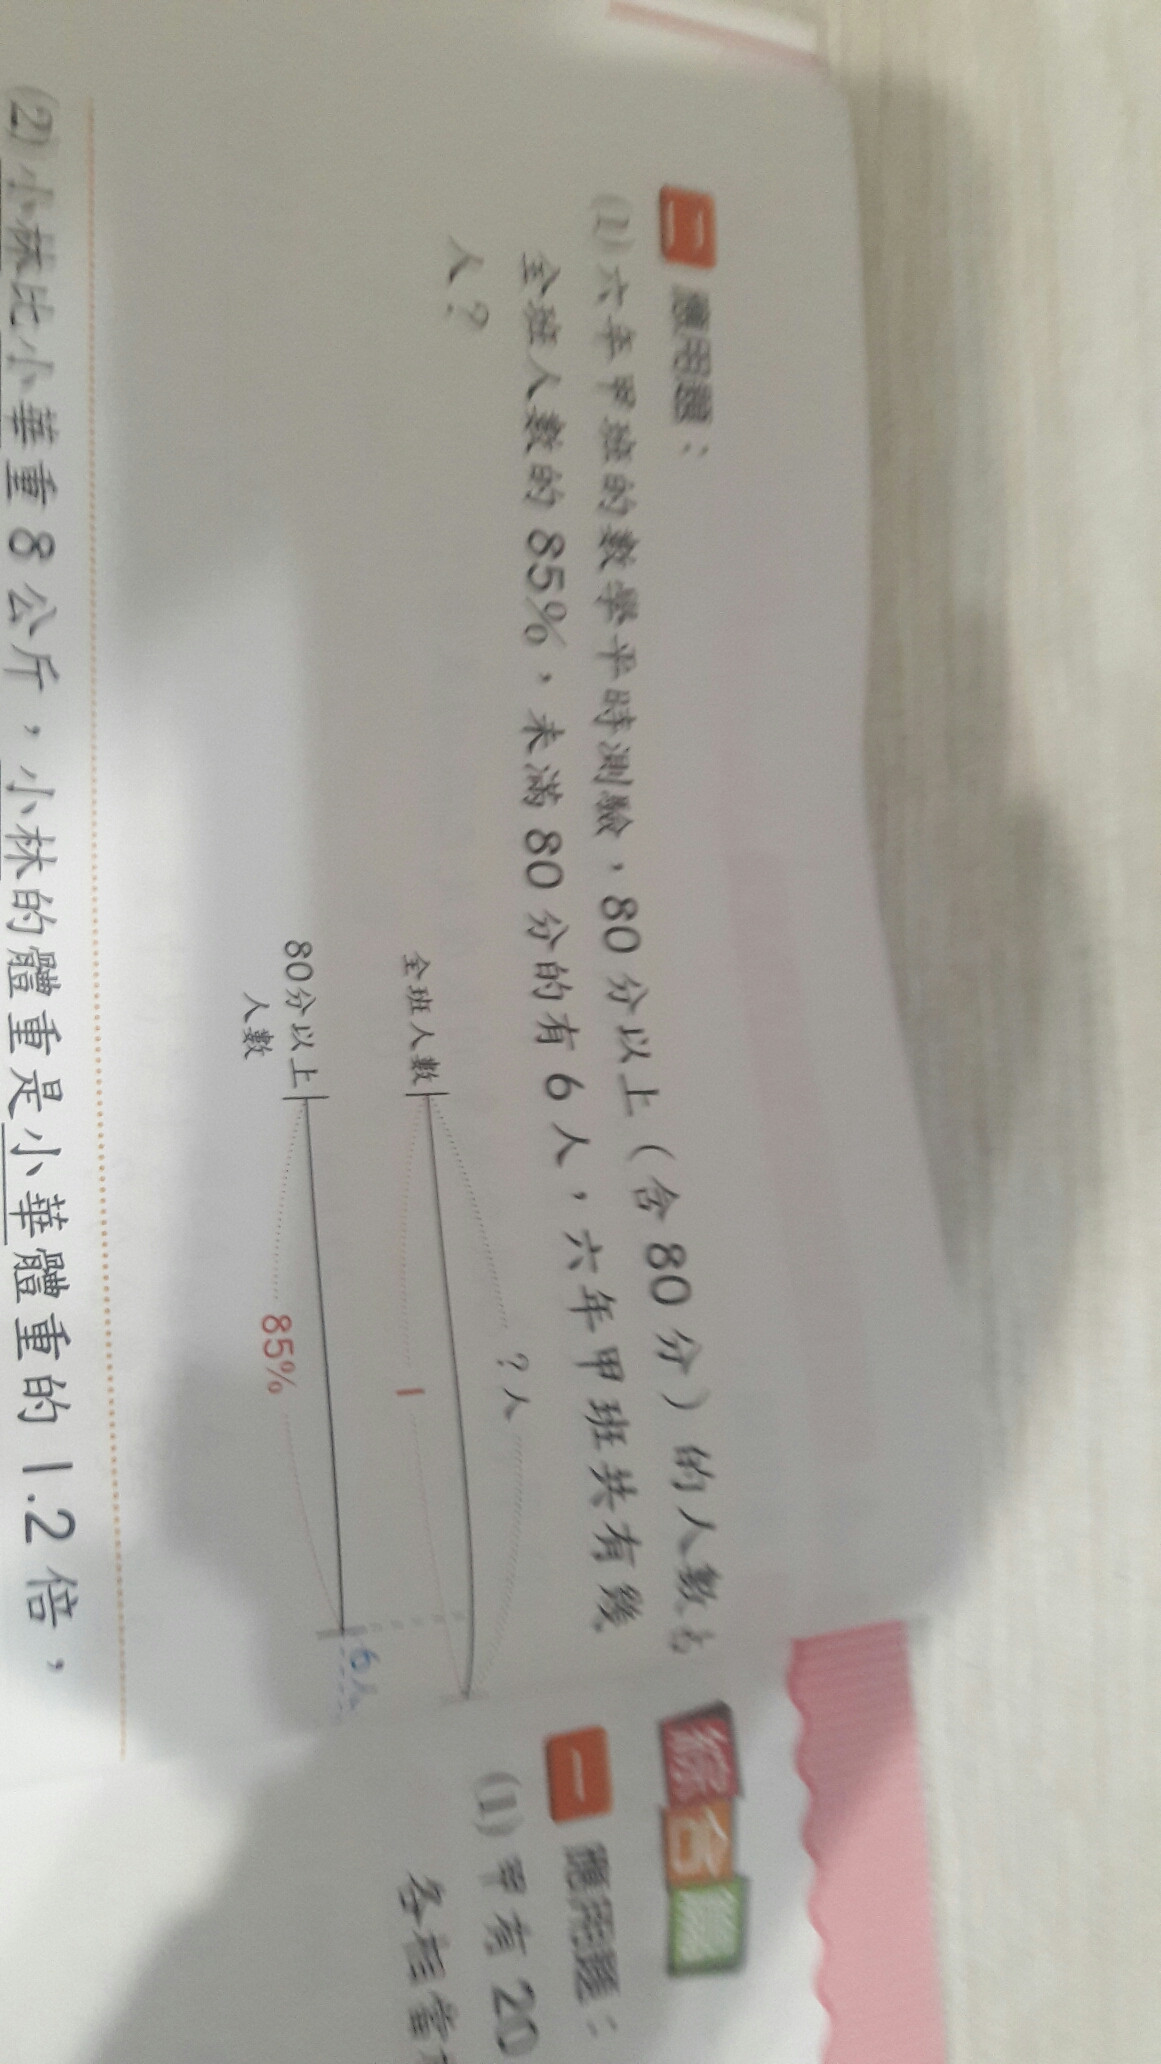 二 應用題：
(1) 六年甲班的數學平時測驗，80分以上（含80分）的人數占
全班人數的85%，未滿80分的有6人，六年甲班共有幾
人？
?人
全班人數
1
80分以上
人數
85%
6人
(2) 小林比小華重8公斤，小林的體重是小華體重的1.2倍，
綜合
一 應用題：
(1) 甲有20
各